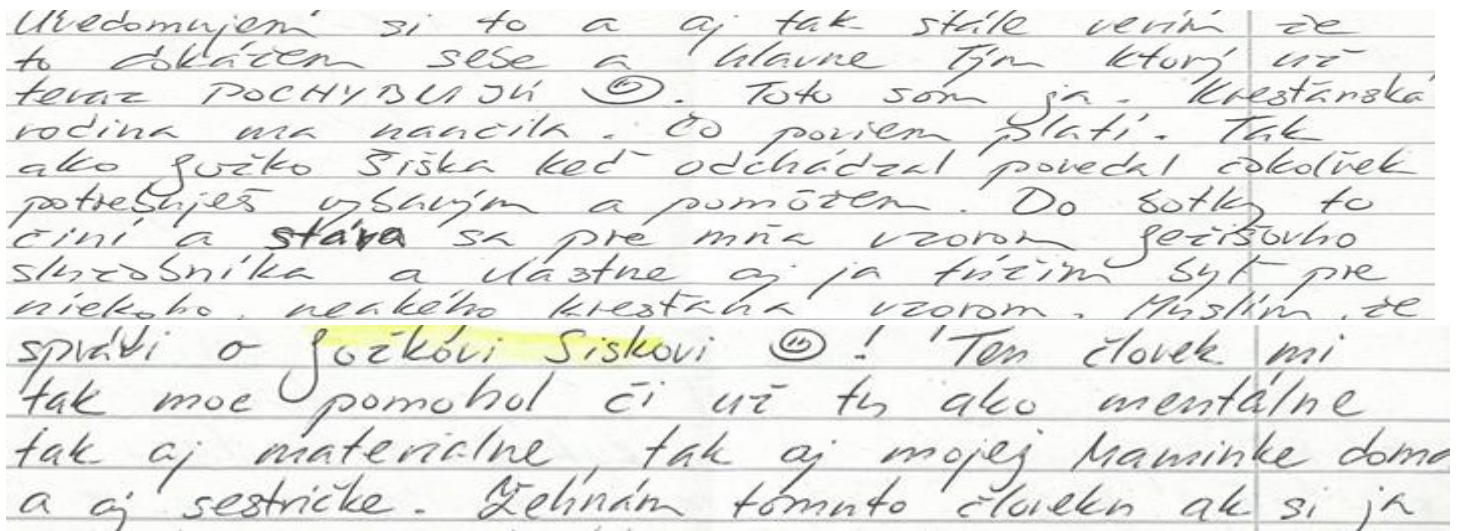 Uvedomujem si to a aj tak stále verím že
to dokážem sebe a hlavne tým ktorý už
teraz POCHYBUJÚ ☺. Toto som ja. Krestánska
rodina ma naučila. Čo poviem platí. Tak
ako Jožko Šiška keď odchádzal povedal čokoľvek
potrebuješ vybavým a pomôžem. Do botky to
činí a stáva sa pre mňa vzorom Ježišovho
služobníka a vlastne aj ja túžim byť pre
niekoho, neakého krestana vzorom. Myslím, že
správi o Jožkovi Siskovi ☺! Ten človek mi
tak moc pomohol či už tu ako mentálne
tak aj materialne, tak aj mojej Maminke doma
a aj sestričke. Žehnám tomuto človeku ak si ja